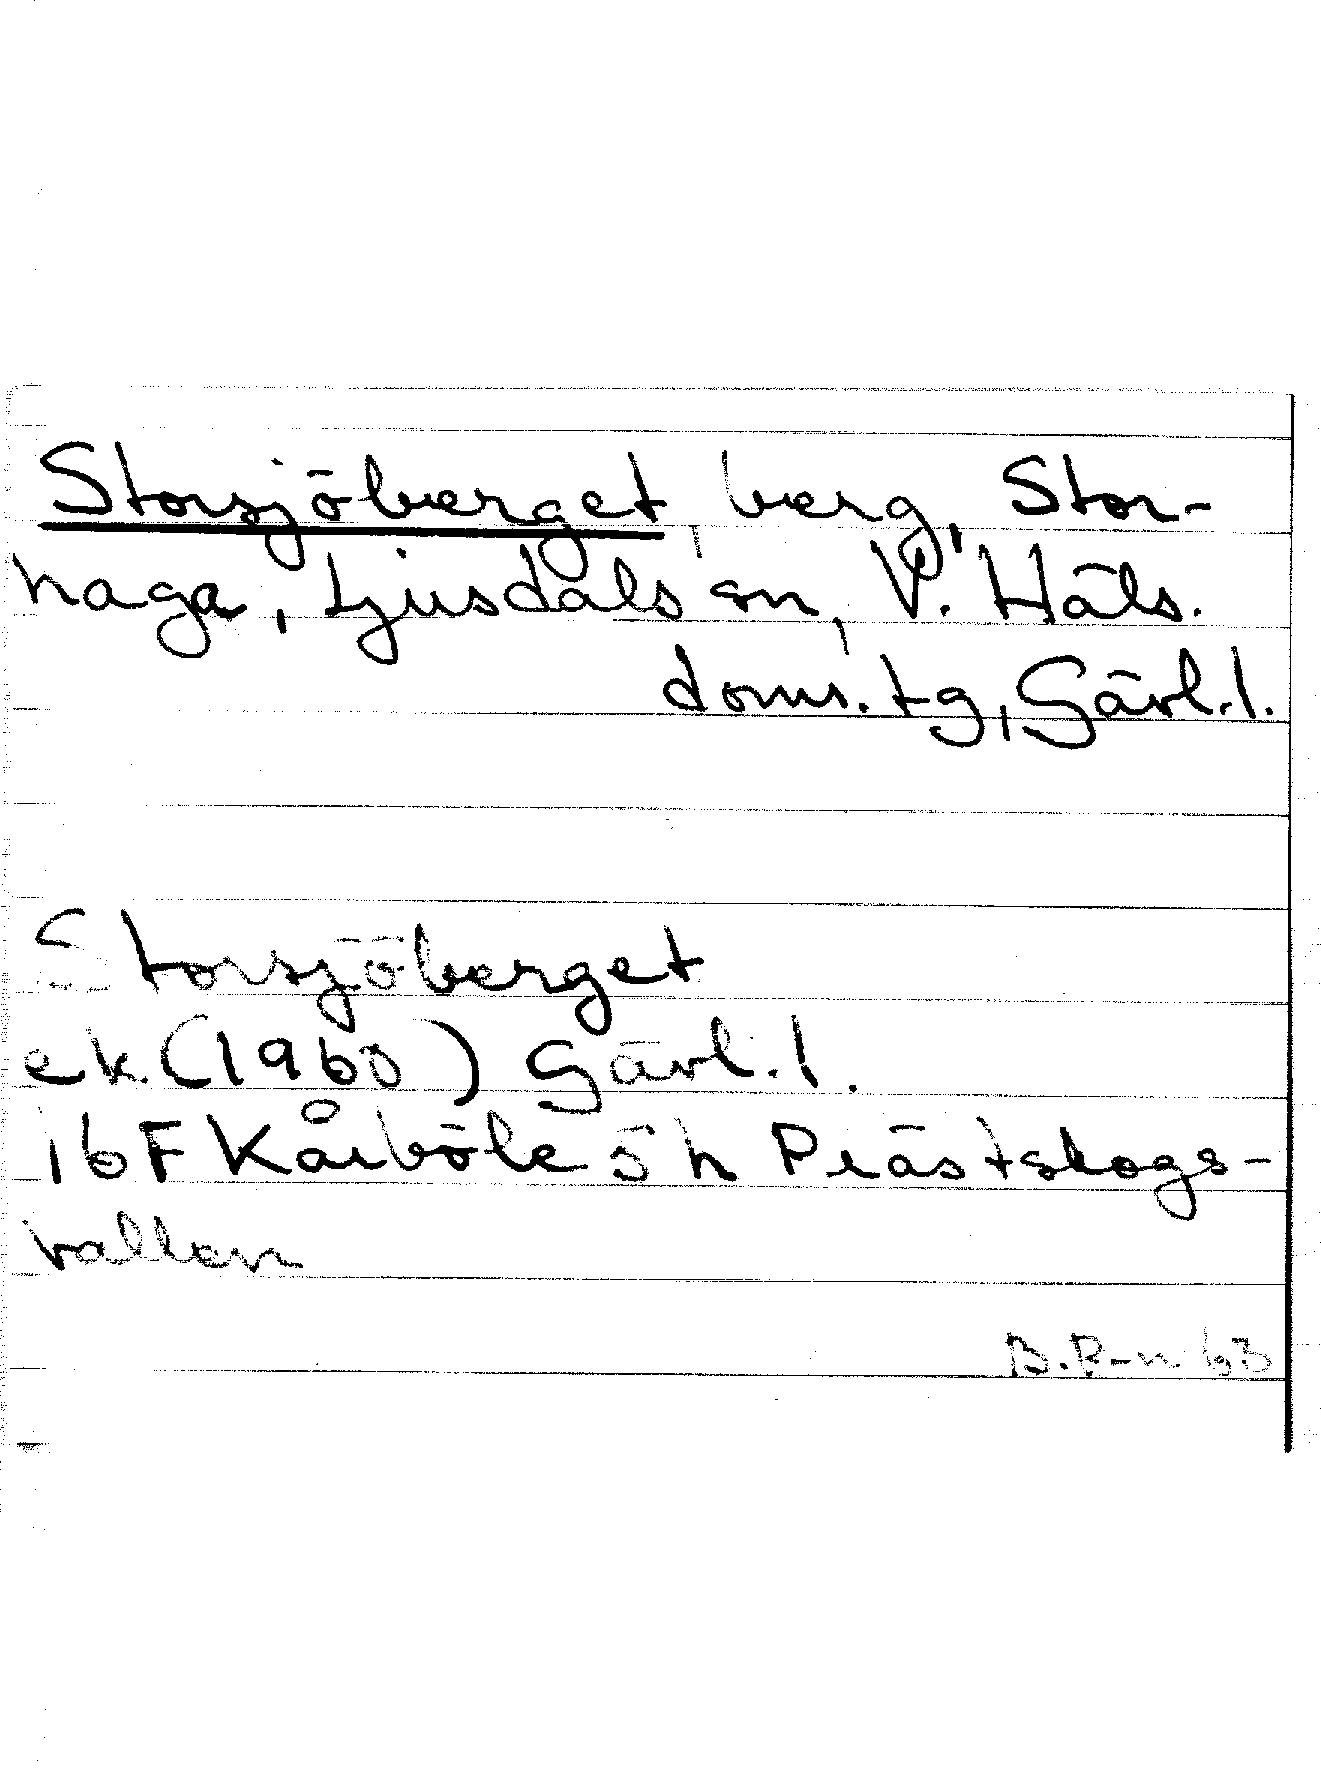 Storsjöberget, berg, Stor-
haga, Ljusdals sn, V. Häls.
doms. tg, Gävl. l.
Storsjöberget
ek. (1960) Gävl. l.
16F Kårböle 5h Prästskogs-
vallen
B.P-n 63